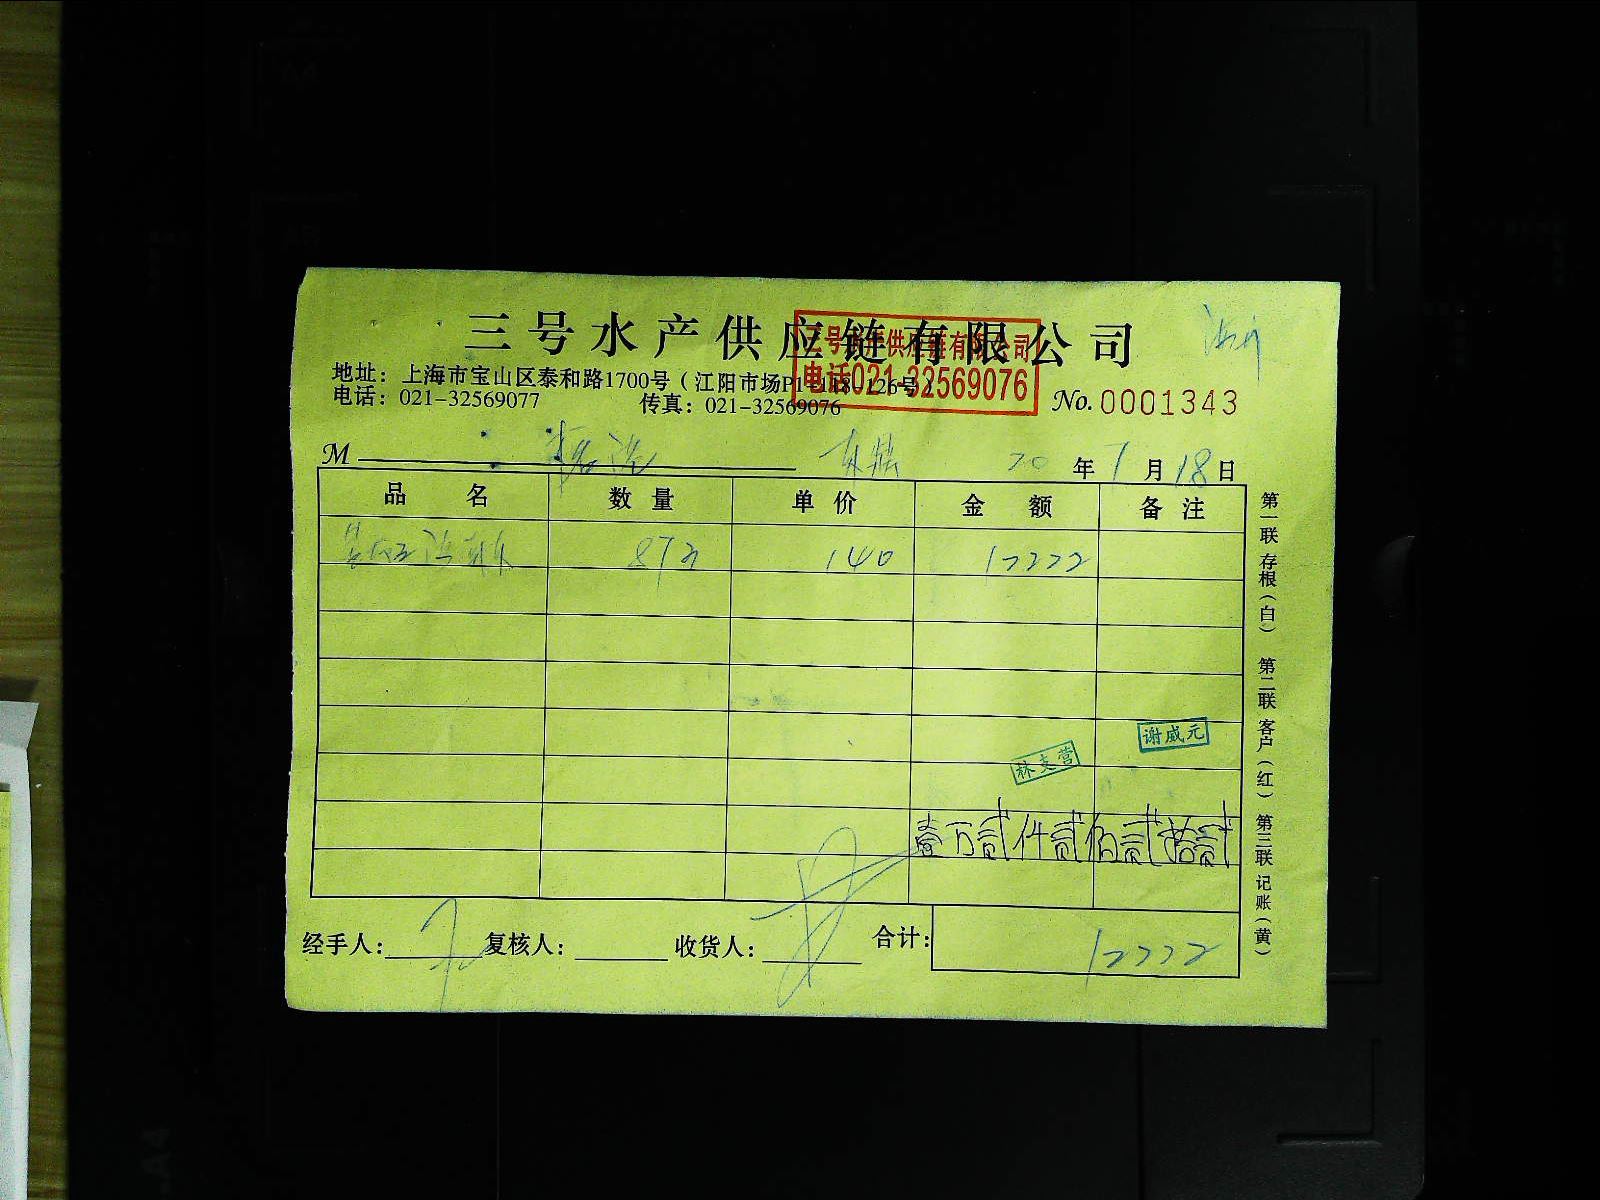 三号水产供应链有限公司
三号水产供应链有限公司
电话021-32569076
地址：上海市宝山区泰和路1700号（江阳市场P1-118-126号）
电话：021-32569077 传真：021-32569076 No.0001343
M 20年1月18日
品名 数量 单价 金额 备注
140 12222
谢威元
林支营
壹万贰仟贰佰贰拾贰
经手人： 复核人： 收货人： 合计：12222
第一联 存根（白） 第二联 客户（红） 第三联 记账（黄）